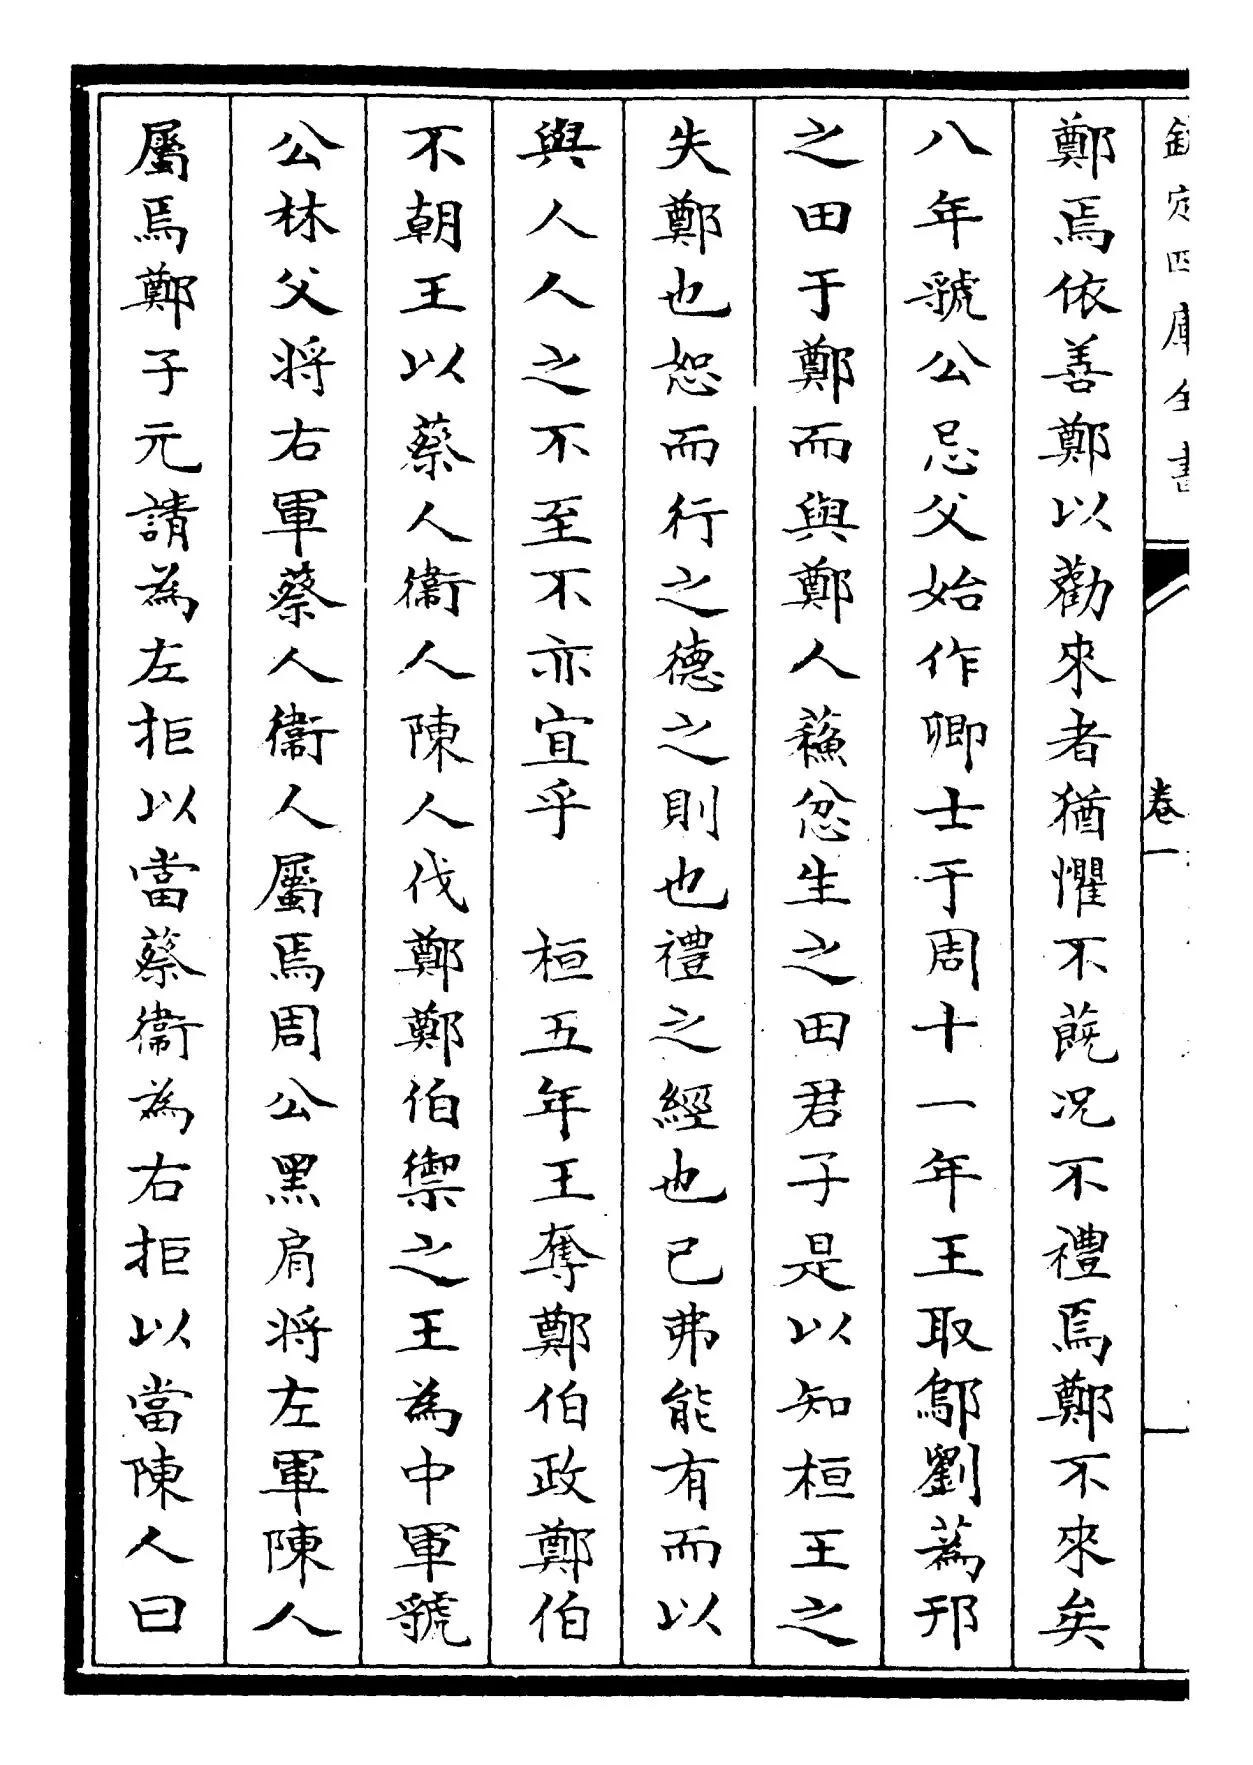 欽定四庫全書
卷一
鄭焉依善鄭以勸來者猶懼不蔇况不禮焉鄭不來矣
八年虢公忌父始作卿士于周十一年王取鄔劉蔿邘
之田于鄭而與鄭人蘇忿生之田君子是以知桓王之
失鄭也恕而行之德之則也禮之經也已弗能有而以
與人人之不至不亦宜乎　桓五年王奪鄭伯政鄭伯
不朝王以蔡人衞人陳人伐鄭鄭伯禦之王為中軍虢
公林父将右軍蔡人衞人屬焉周公黑肩将左軍陳人
屬焉鄭子元請為左拒以當蔡衞為右拒以當陳人曰